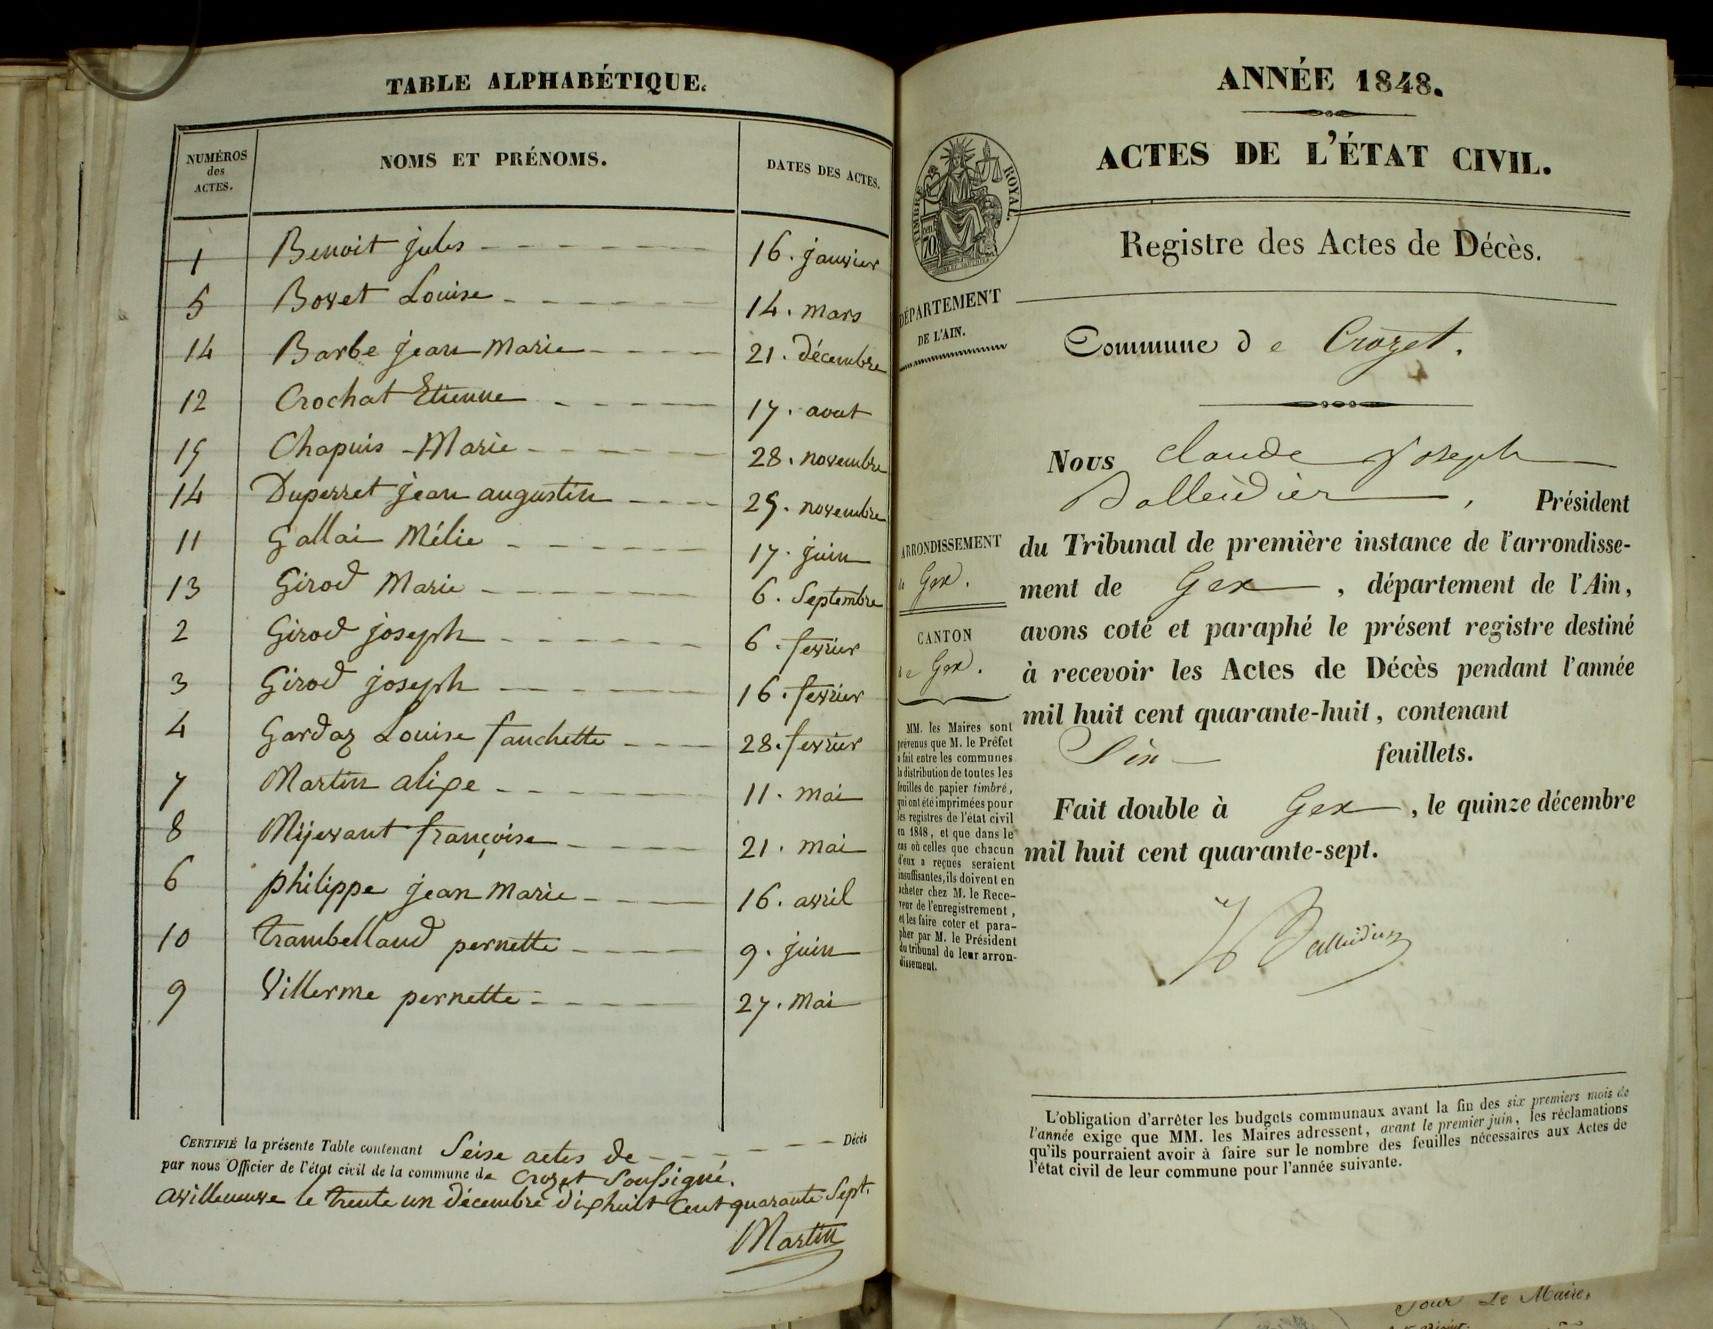 TABLE ALPHABÉTIQUE.
NUMÉROS des ACTES. NOMS ET PRÉNOMS. DATES DES ACTES.
1 Benoit jules 16. janvier
5 Bovet Louise 14. mars
14 Barbe jean Marie 21. décembre
12 Crochat Etienne 17. aout
15 Chapuis Marie 28. novembre
14 Duperret jean augustin 25. novembre
11 Gallai Mélie 17. juin
13 Girod Marie 6. Septembre
2 Girod joseph 6. fevrier
3 Girod joseph 16. fevrier
4 Gardaz Louise fanchette 28. fevrier
7 Martin alixe 11. mai
8 Mijevant françoise 21. mai
6 philippe jean Marie 16. avril
10 trambelland pernette 9. juin
9 Villerme pernette 27. Mai
CERTIFIÉ la présente Table contenant Seise actes de Décès
par nous Officier de l'état civil de la commune de Crozet Soussigné.
avilleneuve le trente un décembre dixhuit Cent quarante Sept.
Martin
ANNÉE 1848.
ACTES DE L'ÉTAT CIVIL.
TIMBRE ROYAL.
70
Registre des Actes de Décès.
DÉPARTEMENT
DE L'AIN.
Commune de Crozet.
Nous Claude Joseph
Dalleidier, Président
ARRONDISSEMENT
de Gex.
du Tribunal de première instance de l'arrondisse-
ment de Gex, département de l'Ain,
CANTON
de Gex.
avons coté et paraphé le présent registre destiné
à recevoir les Actes de Décès pendant l'année
mil huit cent quarante-huit, contenant
Six feuillets.
Fait double à Gex, le quinze décembre
mil huit cent quarante-sept.
MM. les Maires sont
prévenus que M. le Préfet
a fait entre les communes
la distribution de toutes les
feuilles de papier timbré,
qui ont été imprimées pour
les registres de l'état civil
en 1848, et que dans le
cas où celles que chacun
d'eux a reçues seraient
insuffisantes, ils doivent en
acheter chez M. le Rece-
veur de l'enregistrement,
et les faire coter et para-
pher par M. le Président
du tribunal de leur arron-
dissement.
Dalleidier
L'obligation d'arrêter les budgets communaux avant la fin des six premiers mois de
l'année exige que MM. les Maires adressent, avant le premier juin, les réclamations
qu'ils pourraient avoir à faire sur le nombre des feuilles nécessaires aux Actes de
l'état civil de leur commune pour l'année suivante.
Pour Le Maire,